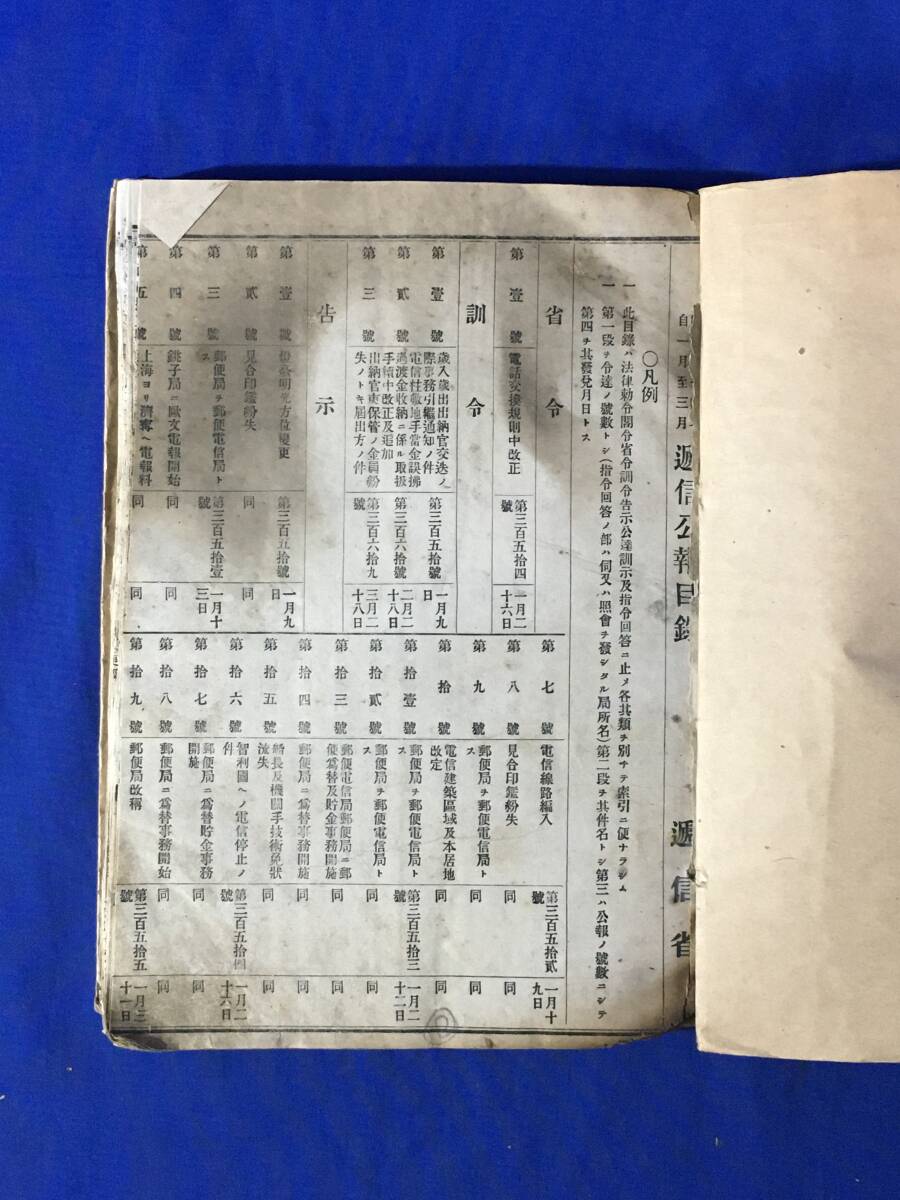 自一月至三月 遞信公報目錄 遞信省
〇凡例
一 此目錄ハ法律勅令閣令省令訓令告示公達訓示及指令回答ニ止メ各其類ヲ別チテ索引ニ便ナラシム
一 第一段ヲ令達ノ號數トシ(指令回答ノ部ハ伺又ハ照會ヲ發シタル局所名)第二段ヲ其件名トシ第三ハ公報ノ號數ニシテ
第四ヲ其發兌月日トス
省令
第壹號 電話交換規則中改正 第三百五拾四號 一月二十六日
訓令
第壹號 歲入歲出出納官交迭ノ際事務引繼通知ノ件 第三百五拾號 一月九日
第貳號 電信柱敷地手當金誤拂過渡金收納ニ係ル取扱手續中改正及追加 第三百六拾號 二月二十八日
第三號 出納官吏保管ノ金員紛失ノトキ届出方ノ件 第三百六拾九號 三月二十八日
告示
第壹號 明光方位變更 第三百五拾號 一月九日
第貳號 見合印鑑紛失 同 同
第三號 郵便局ヲ郵便電信局トス 第三百五拾壹號 一月十三日
第四號 銚子局ニ歐文電報開始 同 同
第五號 上海ヨリ濟寗ヘ電報料 同 同
第七號 電信線路編入 第三百五拾貳號 一月十九日
第八號 見合印鑑紛失 同 同
第九號 郵便局ヲ郵便電信局トス 同 同
第拾號 電信建築區域及本居地改定 同 同
第拾壹號 郵便局ヲ郵便電信局トス 第三百五拾三號 一月二十二日
第拾貳號 郵便局ヲ郵便電信局トス 同 同
第拾三號 郵便電信局郵便局ニ郵便爲替及貯金事務開施 同 同
第拾四號 郵便局ニ爲替事務開施 同 同
第拾五號 船長及機關手技術免狀流失 同 同
第拾六號 智利國ヘノ電信停止ノ件 第三百五拾四號 一月二十六日
第拾七號 郵便局ニ爲替貯金事務開施 同 同
第拾八號 郵便局ニ爲替事務開始 同 同
第拾九號 郵便局改稱 第三百五拾五號 一月三十一日